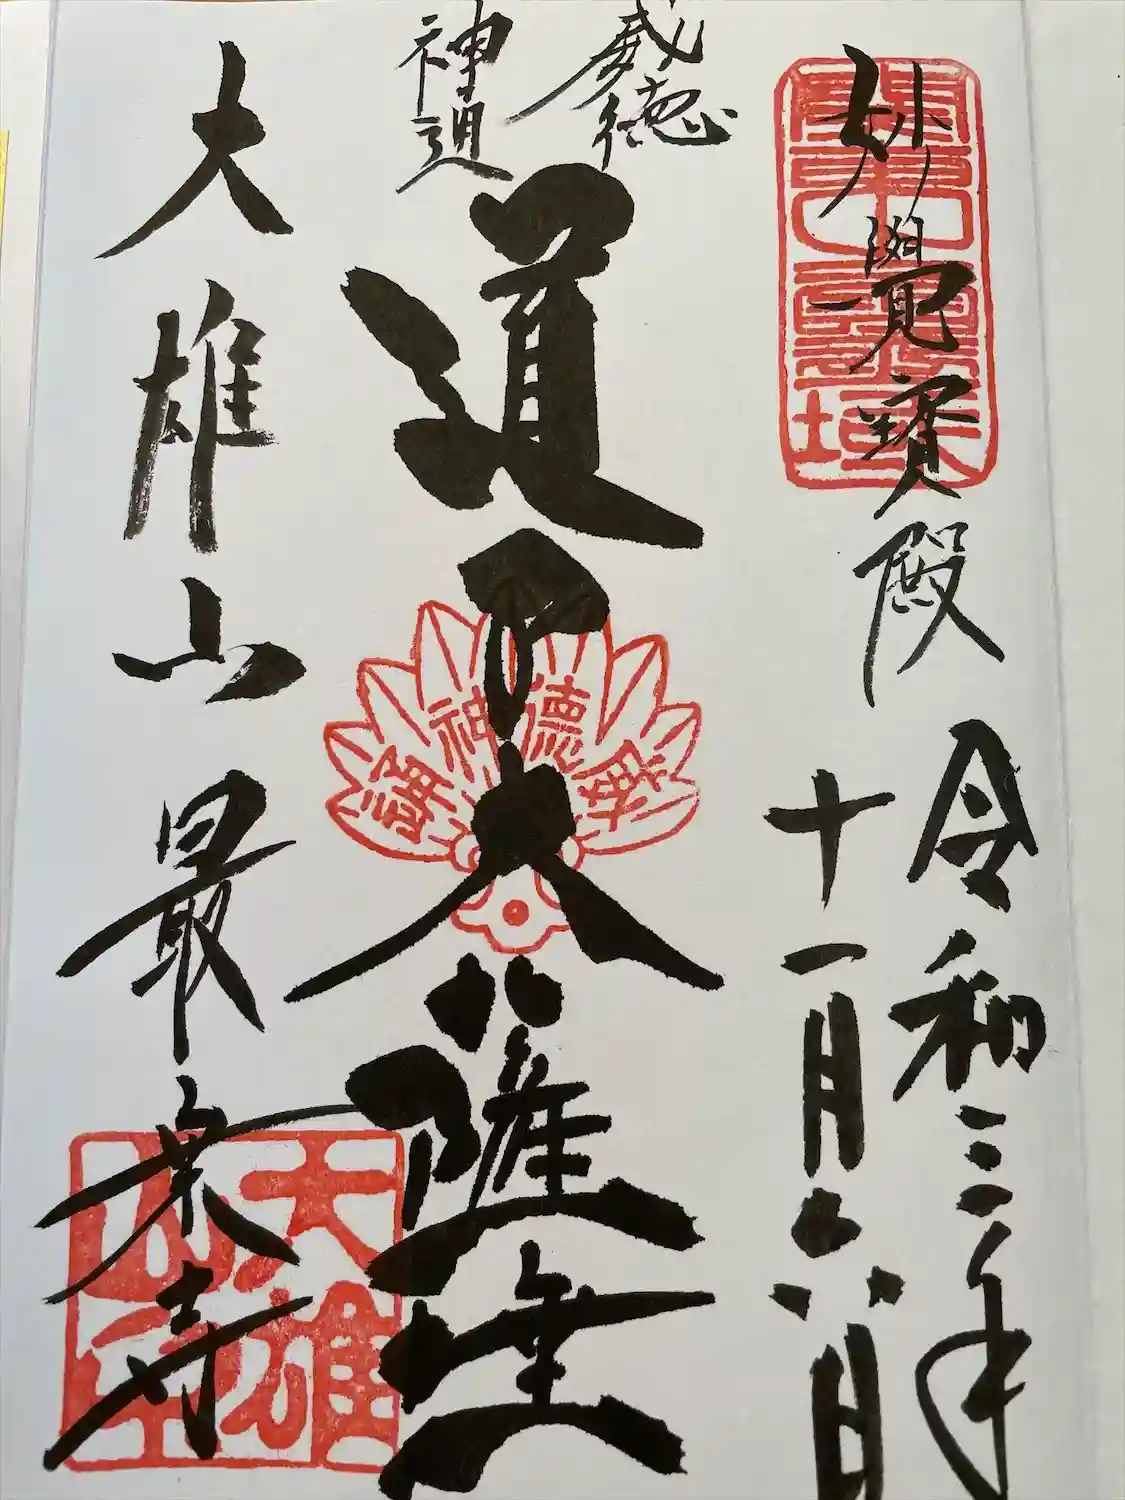 妙覺寶殿
令和三年
十一月六日
威徳
神通
道了大薩埵
威徳神通
大雄山最乗寺
大雄山印